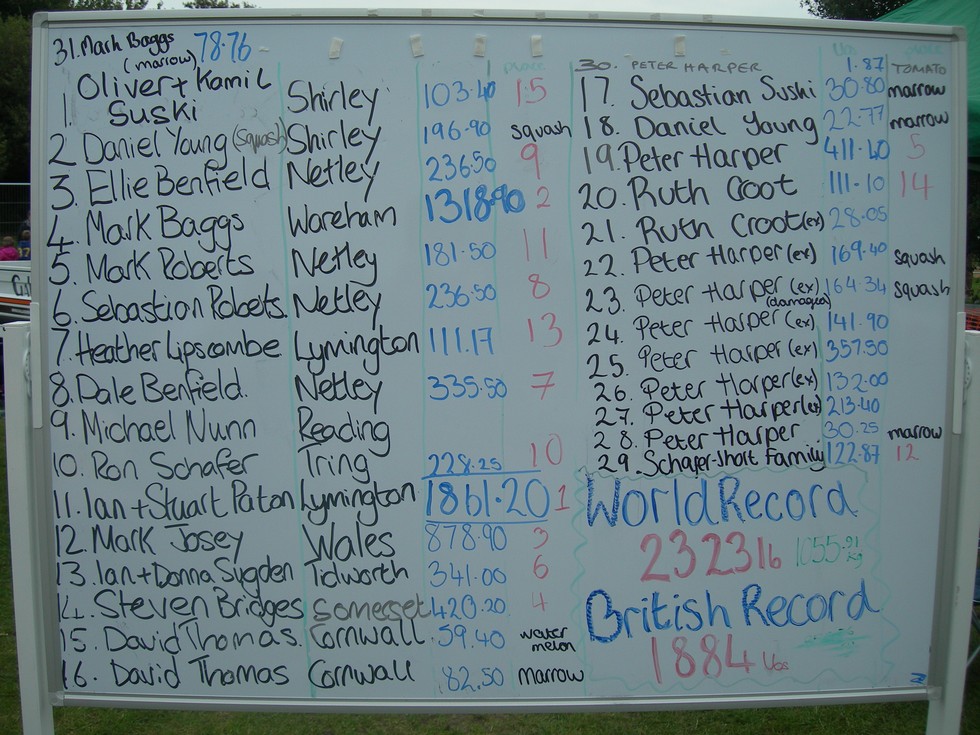 31. Mark Baggs 78.76
(marrow)
place
1. Oliver + Kamil Suski Shirley 103.40 15
2 Daniel Young (squash) Shirley 196.90 squash
3. Ellie Benfield Netley 236.50 9
4. Mark Baggs Wareham 1318.90 2
5. Mark Roberts Netley 181.50 11
6. Sebastian Roberts. Netley 236.50 8
7. Heather Lipscombe Lymington 111.17 13
8. Dale Benfield. Netley 335.50 7
9. Michael Nunn Reading
10. Ron Schafer Tring 228.25 10
11. Ian + Stuart Paton Lymington 1861.20 1
12. Mark Josey Wales 878.90 3
13. Ian + Donna Sugden Tidworth 341.00 6
14. Steven Bridges Somerset 420.20 4
15. David Thomas. Cornwall 59.40 water melon
16. David Thomas Cornwall 82.50 marrow
Lbs place
30. PETER HARPER 1.87 TOMATO
17. Sebastian Suski 30.80 marrow
18. Daniel Young 22.77 marrow
19. Peter Harper 411.40 5
20. Ruth Croot 111.10 14
21. Ruth Croot (ex) 28.05
22. Peter Harper (ex) 169.40 squash
23. Peter Harper (ex) 164.34 squash
(damaged)
24. Peter Harper (ex) 141.90
25. Peter Harper (ex) 357.50
26. Peter Harper (ex) 132.00
27. Peter Harper (ex) 213.40
28. Peter Harper 30.25 marrow
29. Schafer-Short Family 122.87 12
World Record
2323 lb 1055.91 kg
British Record
1884 Lbs